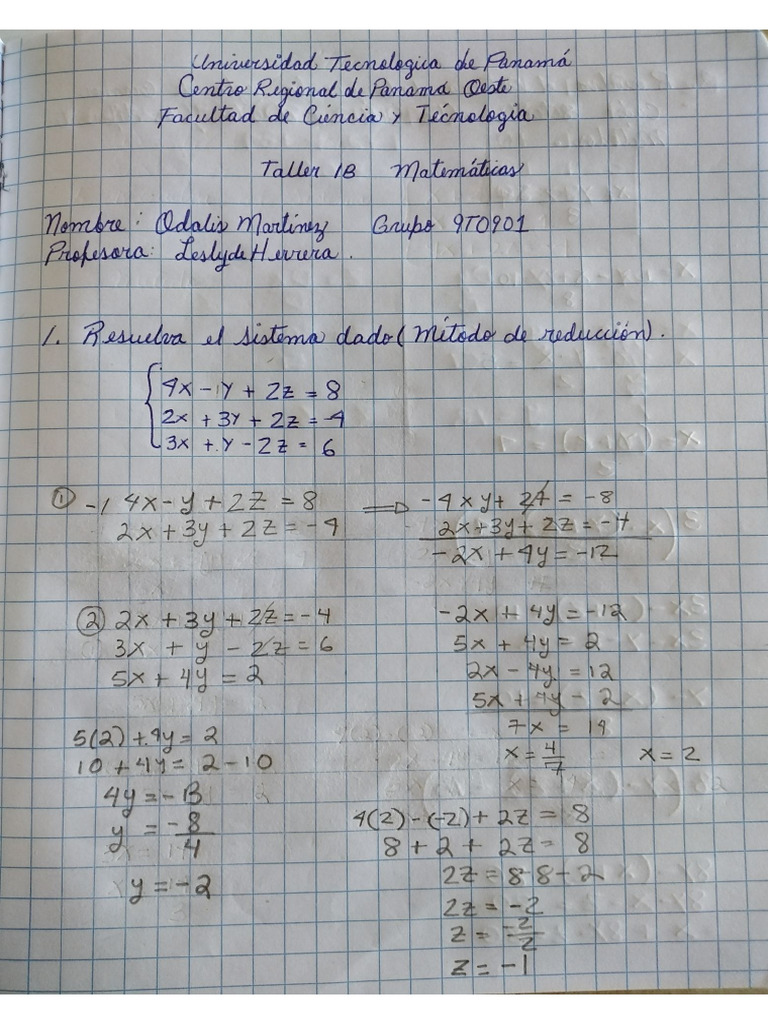 Universidad Tecnologica de Panamá
Centro Regional de Panamá Oeste
Facultad de Ciencia y Técnologia
Taller 1B Matemáticas
Nombre: Odalis Martinez Grupo 9T0901
Profesora: Leslyde Herrera.
1. Resuelva el sistema dado (Método de reducción).
4x - 1y + 2z = 8
2x + 3y + 2z = -4
3x + y - 2z = 6
① -1 4x - y + 2z = 8 ⇒ -4xy + 2z = -8
2x + 3y + 2z = -4 2x + 3y + 2z = -4
-2x + 4y = -12
② 2x + 3y + 2z = -4
3x + y - 2z = 6
5x + 4y = 2
-2x + 4y = -12
5x + 4y = 2
2x - 4y = 12
5x + 4y - 2
7x = 14
x = 4/7 x = 2
5(2) + 4y = 2
10 + 4y = 2 - 10
4y = -B
y = -8/4
y = -2
4(2) - (-2) + 2z = 8
8 + 2 + 2z = 8
2z = 8 - 8 - 2
2z = -2
z = -2/2
z = -1